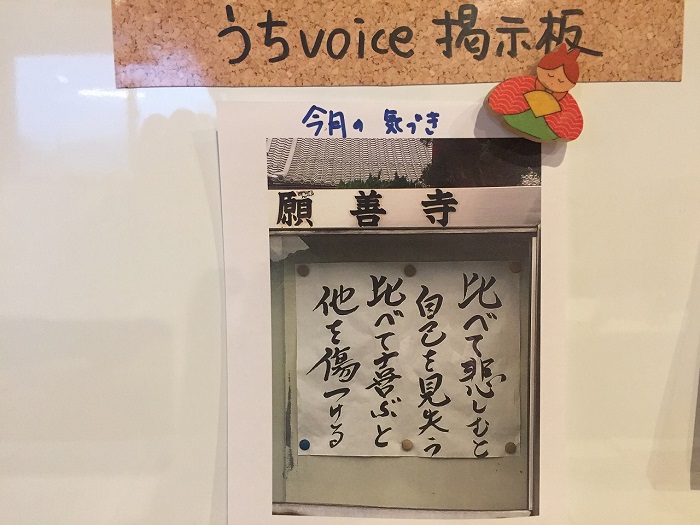 うちvoice 掲示板
今月の気づき
願善寺
比べて悲しむと
自己を見失う
比べて喜ぶと
他を傷つける